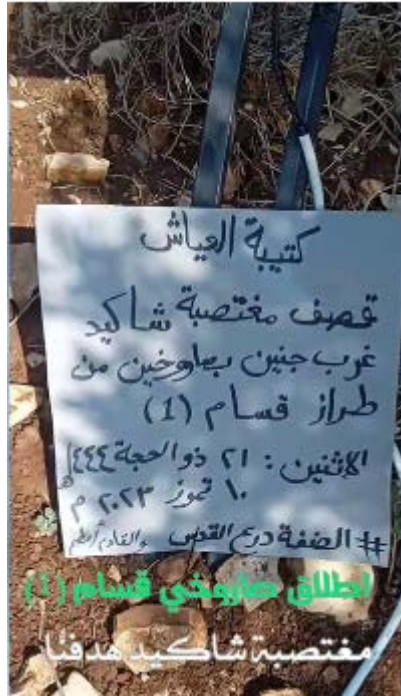 كتيبة العياش
قصف مغتصبة شاكيد
غرب جنين بصاروخين من
طراز قسام (1)
الاثنين : ٢١ ذو الحجة ١٤٤٤ه
١٠ تموز ٢٠٢٣ م
# الضفة درع القدس والقادم أعظم
اطلاق صاروخي قسام (1)
مغتصبة شاكيد هدفنا